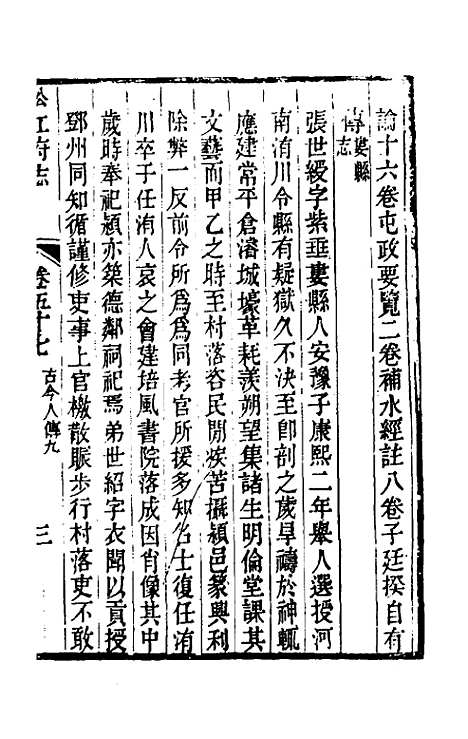 論十六卷屯政要覽二卷補水經註八卷子廷揆自有
傳婁縣志
張世綬字紫垂婁縣人安豫子康熙二年舉人選授河
南洧川令縣有疑獄久不決至卽剖之歲旱禱於神輒
應建常平倉濬城壕革耗羨朔望集諸生明倫堂課其
文藝而甲乙之時至村落咨民閒疾苦攝潁邑篆興利
除弊一反前令所爲爲同考官所援多知名士復任洧
川卒子任洧人哀之會建培風書院落成因肖像其中
歲時奉祀潁亦築德鄰祠祀焉弟世紹字衣聞以貢授
鄧州同知循謹修吏事上官檄散賑步行村落吏不敢
松江府志
卷五十七
古今人傳九
三